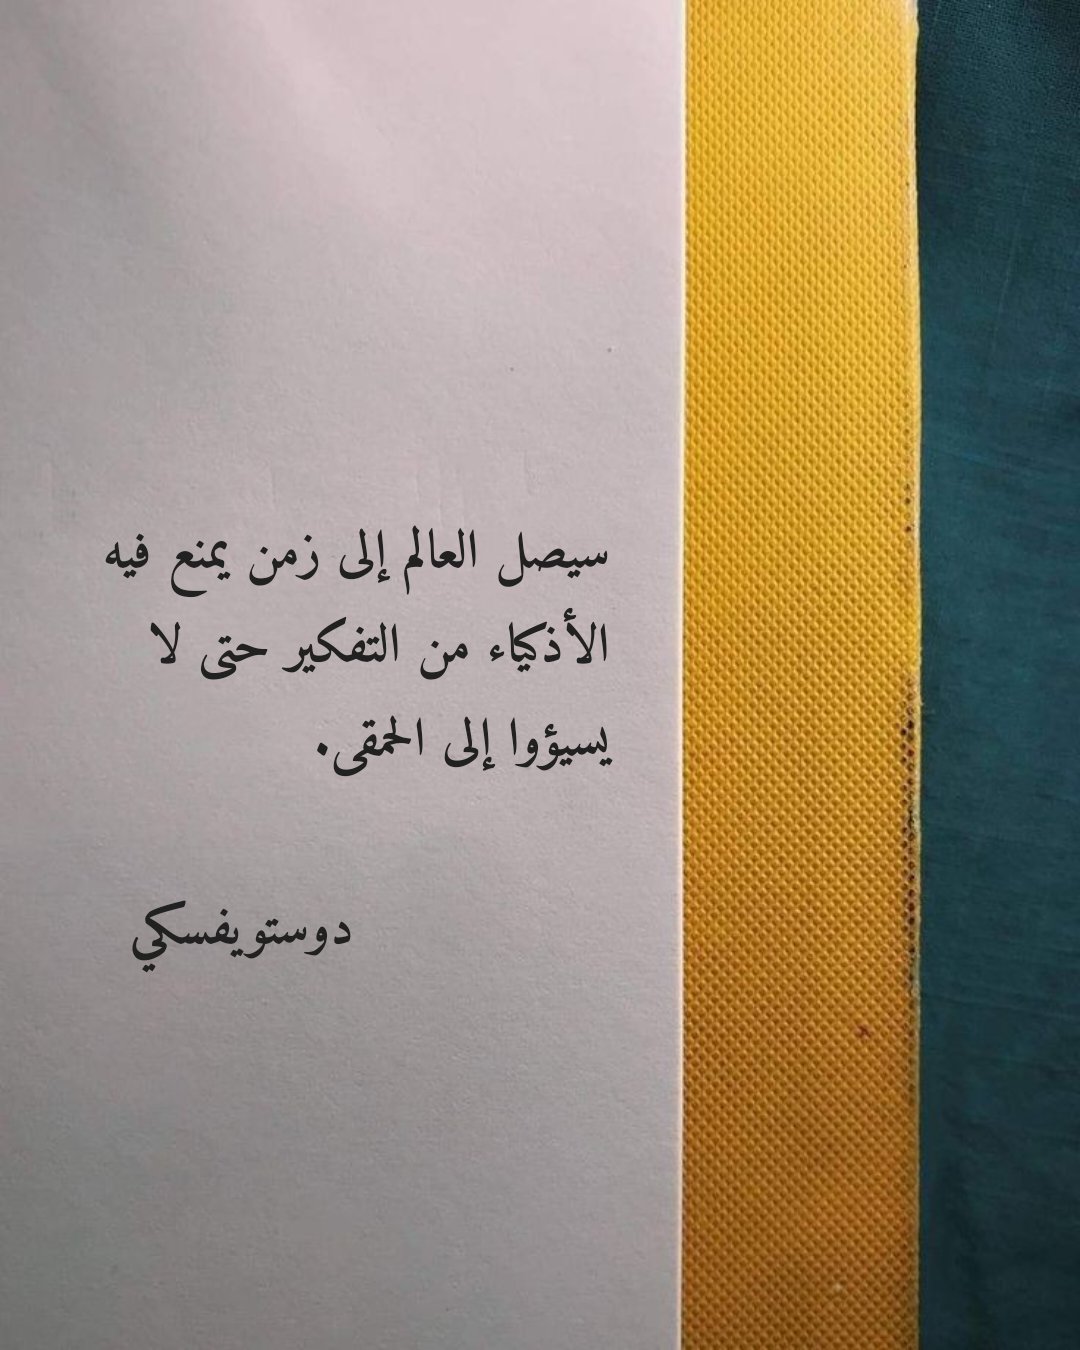 سيصل العالم إلى زمن يمنع فيه
الأذكياء من التفكير حتى لا
يسيؤوا إلى الحمقى.
دوستويفسكي